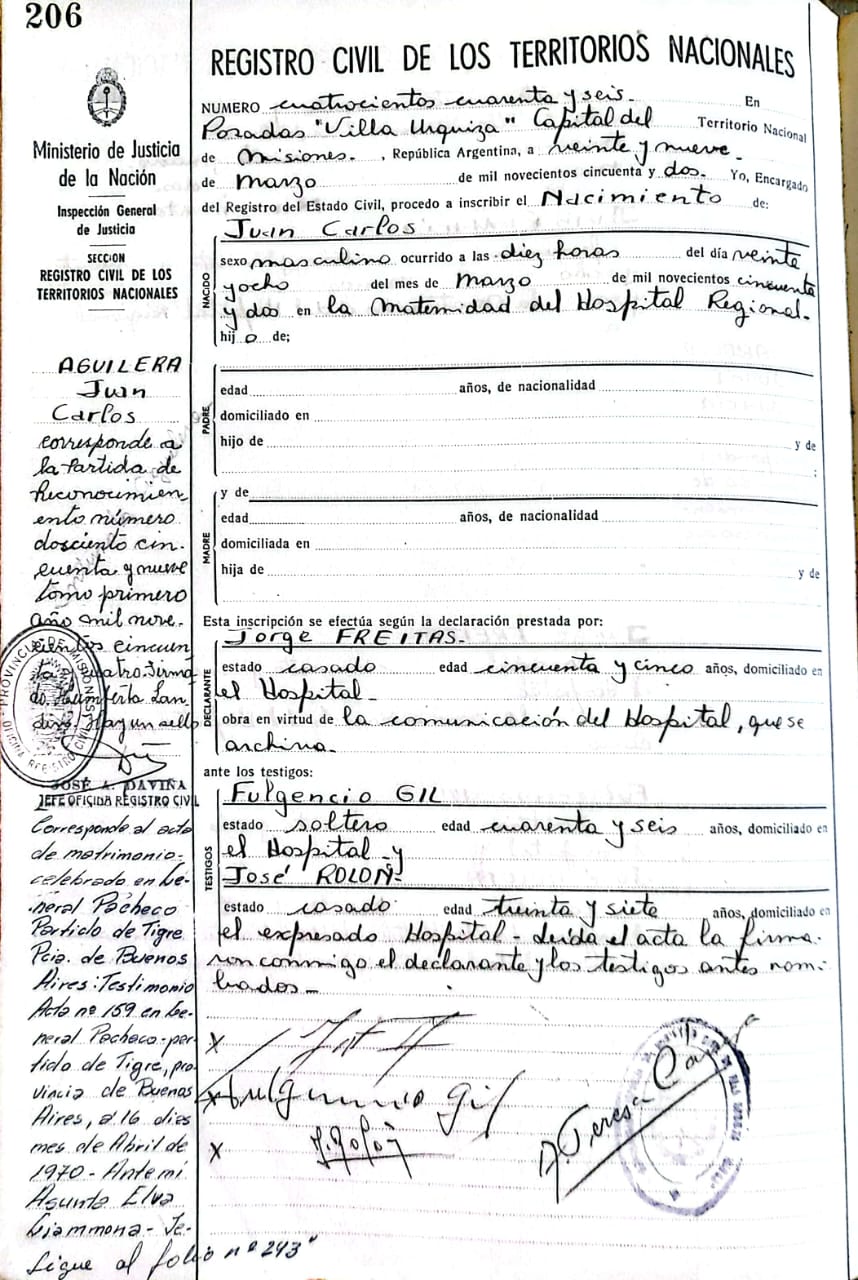 206
REGISTRO CIVIL DE LOS TERRITORIOS NACIONALES
Ministerio de Justicia
de la Nación
Inspección General
de Justicia
SECCION
REGISTRO CIVIL DE LOS
TERRITORIOS NACIONALES
AGUILERA
Juan
Carlos
corresponde a
la Partida de
Reconocimien
ento número
dosciento cin-
cuenta y nueve
tomo primero
año mil nove-
cientos cincuen
ta cuatro. Firma
do. Humberto Lan
dro. Hay un sello
PROVINCIA DE MISIONES
OFICINA REGISTRO CIVIL
JOSÉ A. DAVIÑA
JEFE OFICINA REGISTRO CIVIL
Corresponde al acta
de matrimonio-
celebrado en Ge-
neral Pacheco
Partido de Tigre
Pcia. de Buenos
Aires: Testimonio
Acta nº 159 en Ge-
neral Pacheco - par-
tido de Tigre, pro
vincia de Buenos
Aires, a 16 dies
mes de Abril de
1970 - Ante mi
Asunta Elva
Giammona - Se-
Sigue al folio nº 243"
NUMERO cuatrocientos cuarenta y seis. En
Posadas "Villa Urquiza" Capital del Territorio Nacional
de Misiones. , República Argentina, a veinte y nueve.
de Marzo de mil novecientos cincuenta y dos. Yo, Encargado
del Registro del Estado Civil, procedo a inscribir el Nacimiento de:
Juan Carlos
NACIDO
sexo masculino ocurrido a las diez horas del día veinte
yocho del mes de Marzo de mil novecientos cincuenta
y dos en la Maternidad del Hospital Regional.
hij o de;
PADRE
edad años, de nacionalidad
domiciliado en
hijo de y de
;
y de
MADRE
edad años, de nacionalidad
domiciliada en
hija de y de
Esta inscripción se efectúa según la declaración prestada por:
Jorge FREITAS.
DECLARANTE
estado casado edad cincuenta y cinco años, domiciliado en
el Hospital-
obra en virtud de la comunicación del Hospital, que se
archiva.
ante los testigos:
Fulgencio GIL
TESTIGOS
estado soltero edad cuarenta y seis años, domiciliado en
el Hospital - y
José ROLON-
estado casado edad treinta y siete años, domiciliado en
el expresado Hospital - Leída el acta la firma-
ron conmigo el declarante y los testigos antes nom-
brados-
X
X Fulgencio Gil
X J. Rolón